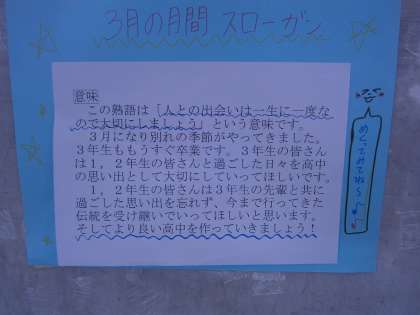 3月の月間 スローガン
意味
この熟語は「人との出会いは一生に一度な
ので大切にしましょう」という意味です。
３月になり別れの季節がやってきました。
３年生ももうすぐ卒業です。３年生の皆さん
は１，２年生の皆さんと過ごした日々を高中
の思い出として大切にしていってほしいです。
１，２年生の皆さんは３年生の先輩と共に
過ごした思い出を忘れず、今まで行ってきた
伝統を受け継いでいってほしいと思います。
そしてより良い高中を作っていきましょう！
めくってみてね～